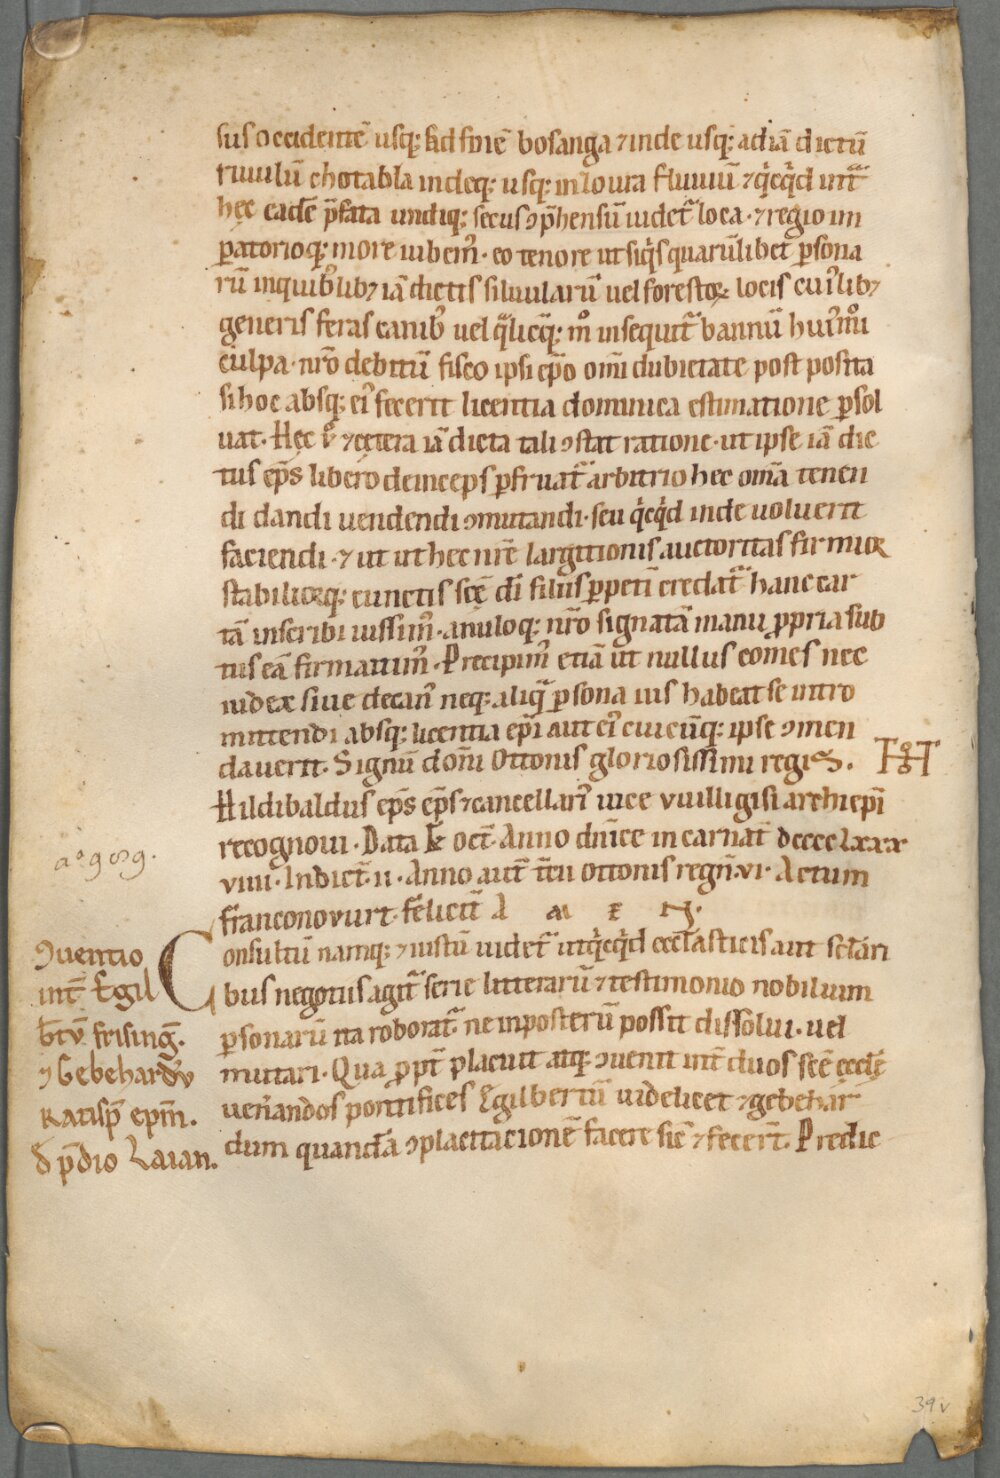 sus occidentē usq; ad finē bosanga ⁊ inde usq; ad iā dictū
riuulū chotabla indeq; usq; in loura fluuiū ⁊ qͥcqͥd int̄
hęc eadē p̄fata undiq; secus ꝯp̄hensū uidet᷑ loca · ⁊ regio im
ꝑatorioq; more iubem᷒ · eo tenore ut siqͥs quarūlibet ꝑsona
rū in quib᷒libꝫ iā dictis siluularū uel forestoꝝ locis cui᷒libꝫ
generis feras canib᷒ uel qᷓlicūq; mͦ insequit᷑ bannū hui᷒mͦi
culpa · nr̄o debitū fisco ipsi ep̄o om̄i dubietate post posita
si hoc absq; ei᷒ fecerit licentia dominica estimatione ꝑsol
uat · Hęc ů ⁊ cętera iā dicta tali ꝯstat ratione · ut ipse iā dic
tus ep̄s libero deinceps ꝑfruat᷑ arbitrio hec om̄ia tenen
di dandi uendendi ꝯmutandi · seu qͥcqͥd inde uoluerit
faciendi · ⁊ ut ut hec nr̄ę largitionis auctoritas firmior
stabiliorq; cunctis scē dī filiis ꝑpeti credat᷑ hanc car
tā inscribi iussim᷒ · anuloq; nr̄o signatā manu ꝓpria sub
tus eā firmauim᷒ · Precipim᷒ etiā ut nullus comes nec
iudex siue decan᷒ neq; aliqᷓ ꝑsona ius habeat se intro
mittendi absq; licentia ep̄i aut ei᷒ cuicūq; ipse ꝯmen
dauerit · Signū dom̄i Ottonis gloriosissimi regis .
Hildibaldus ep̄s ep̄s ⁊ cancellari᷒ uice vuilligisi archiep̄i
recognoui · Data k̄ oct̄ · Anno dn̄ice incarnat̄ dcccclxxx
viiii · Indict̄ · ii · Anno aut̄ t̄cii Ottonis regn̄ · vi · Actum
franconovurt · felicit̄ A M E N ·
a° 989.
Consultū namq; ⁊ iustū uidet᷑ ut qͥcqͥd ecclasticis aut sclari
bus negotiis agit᷑ serie litterarū ⁊ testimonio nobilium
ꝑsonarū ita roborat᷑ ne in posterū possit dissolui · uel
mutari · Qua ꝓpt̄ placuit atq; ꝯuenit int̄ duos scē eccłę
uenandos pontifices Egilbertū uidelicet ⁊ gebehar
dum quandā ꝯplacitacionē facere sic ⁊ fecer̄t · Predic
ꝯuentio
int̄ Egil
b̄tv̄ frising̅.
⁊ Gebehardv̄
Ratisp̄ ep̄m.
đ p̄dio Laian.
39v